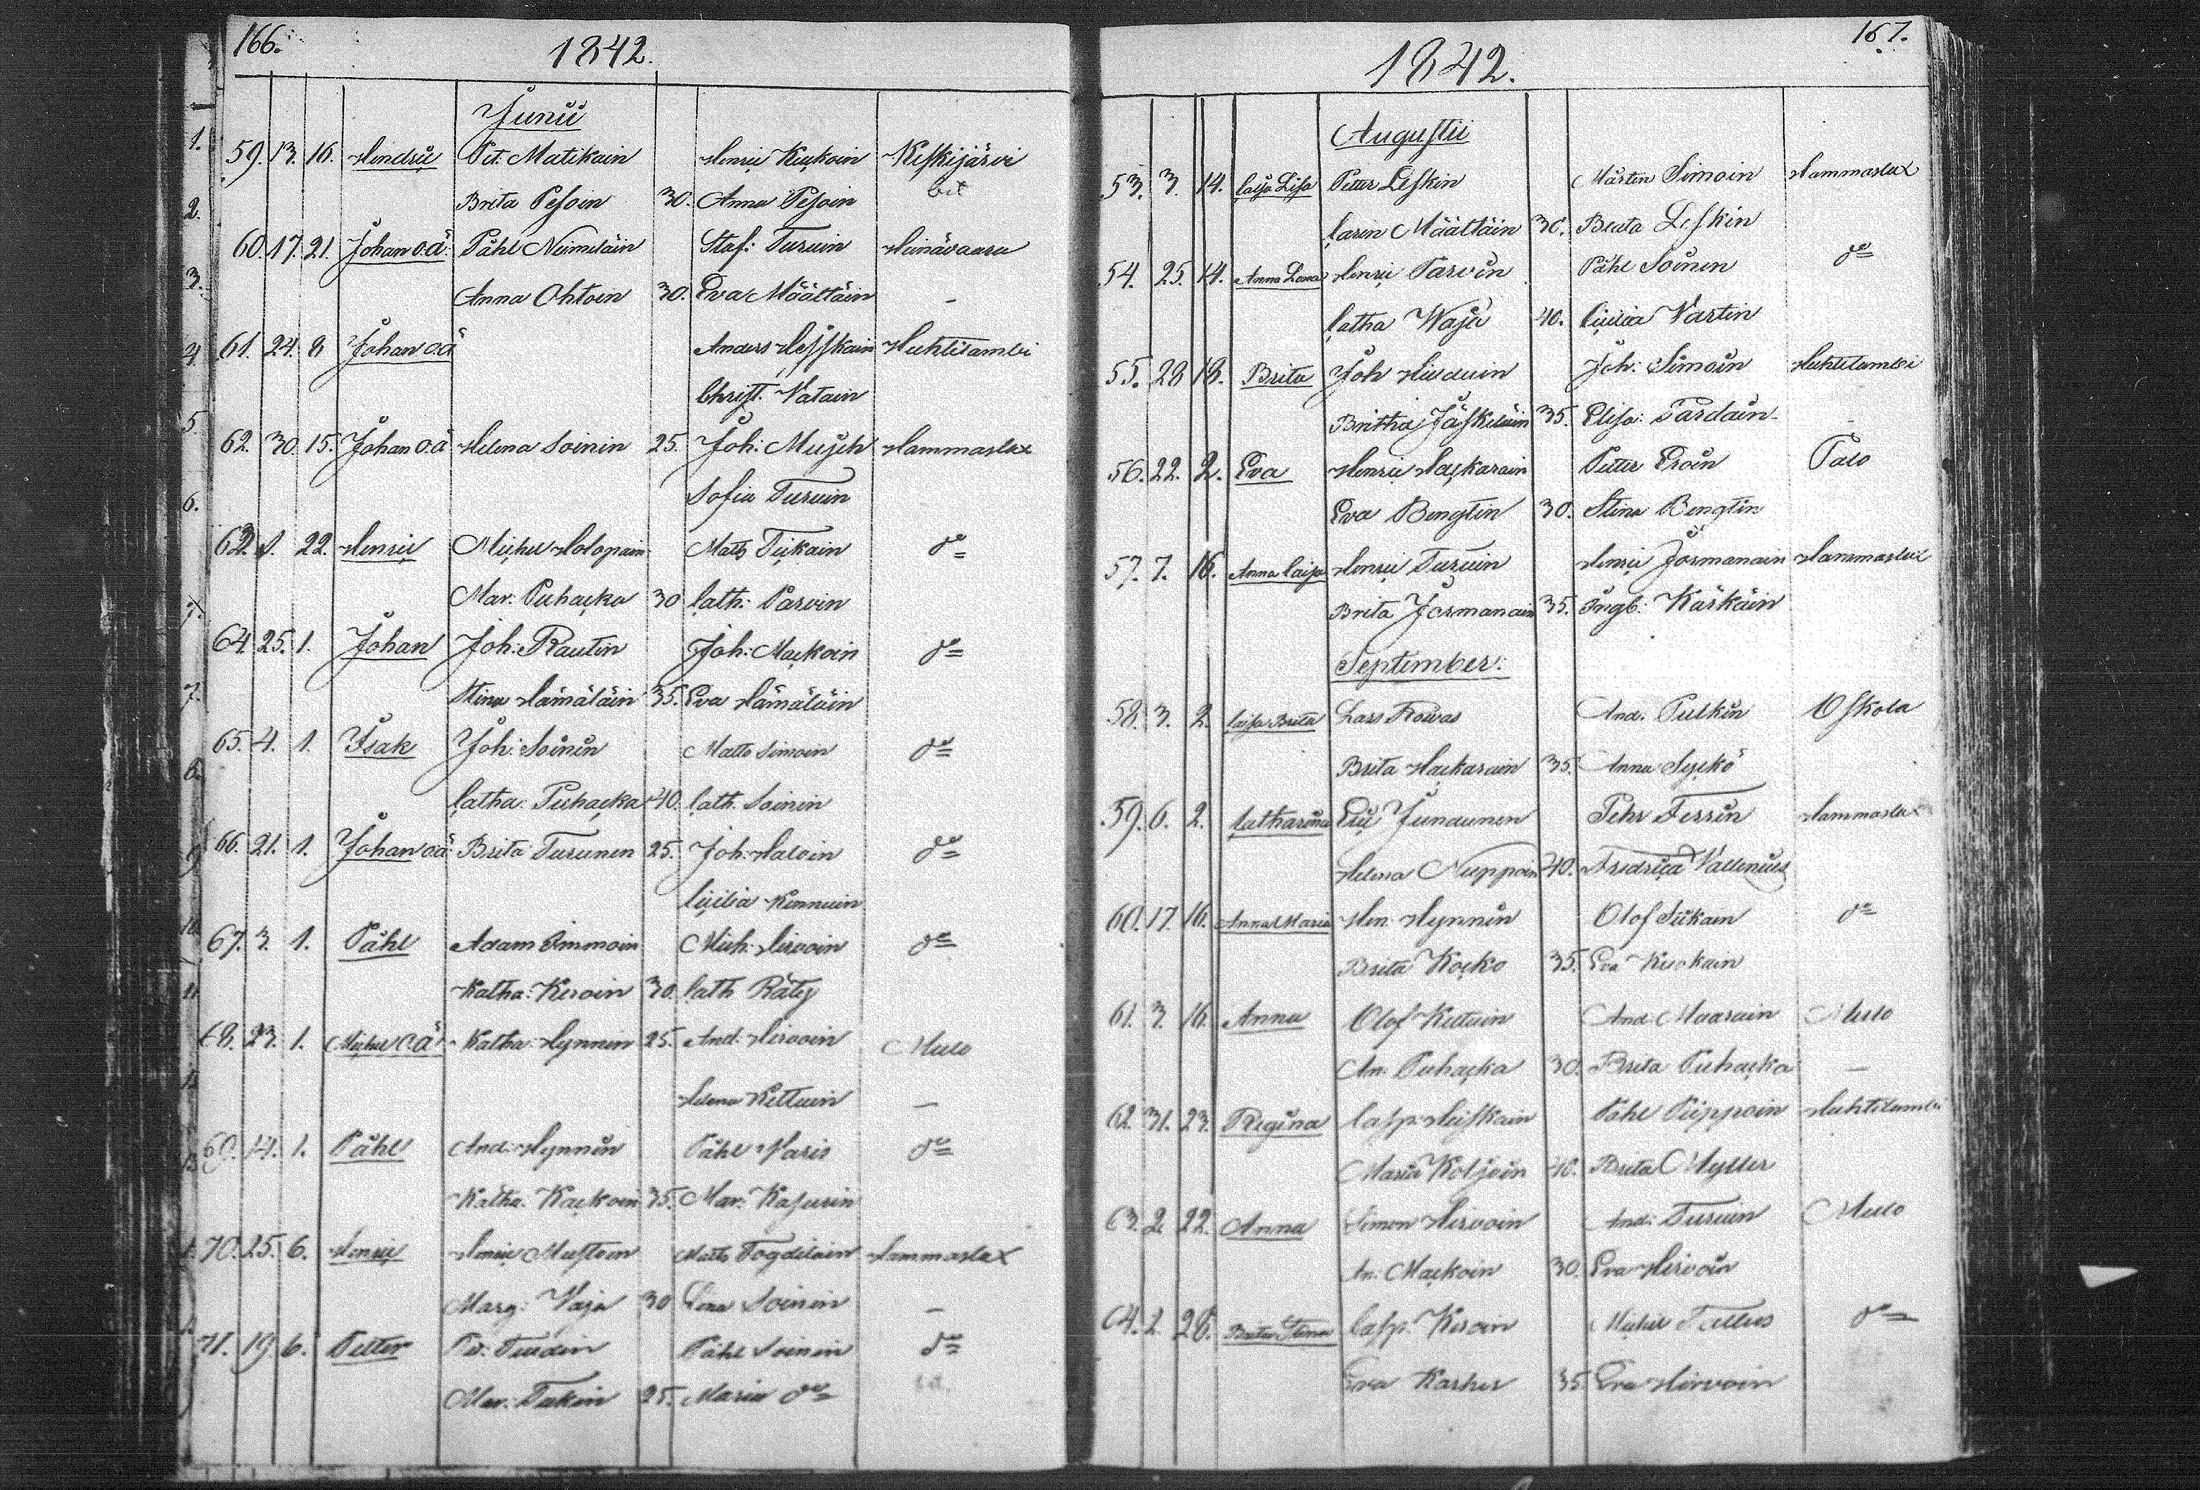 166.
1842.
Junii
59. 13. 16. Hendric Pet. Matikain Henric Kuckoin Keskijärvi
Brita Pesoin 30. Anna Pesoin
60. 17. 21. Johan o.ä. Påhl Nuimeläin Staf: Turuin Heinävaara
Anna Ohtoin 30. Eva Määltäin —
61. 24. 8 Johan o.ä Anders Heiskain Huhtilambi
Christ. Vatain
62. 30. 15. Johan o.ä Helena Soinin 25. Joh: Mujeh Hammaslax
Sofia Turuin
63. 1. 22. Henric Michel Holopain Matts Tikain do
Mar. Puhacka 30 Cath: Parvin
64. 25. 1. Johan Joh: Rautin Joh: Mackoin do
Stina Hämäläin 35. Eva Hämäläin
65. 4. 1. Isak Joh: Soinin Matts Simoin do
Catha. Puhacka 40. Cath. Soinin
66. 21. 1. Johan o.ä Brita Turunen 25. Joh: Haloin do
Cicilia Kinnuin
67. 3. 1. Påhl Adam Immoin Mich: Hirvoin do
Katha: Keroin 30. Cath Räty
68. 23. 1. Michel o.ä Katha: Hynnin 25. And: Hirvoin Mulo
Helena Kettuin —
69. 14. 1. Påhl And: Hynnin Påhl Varis do
Katha. Kackoin 35. Mar: Kasurin
70. 25. 6. Henric Henric Mustoin Matts Togdilain Hammaslax
Marg: Vaja 30 Lisa Soinin —
71. 19 6. Petter Pet: Turdin Påhl Soinin do
Mar: Tukin 25. Maria do
167.
1842.
Augustii
53. 3. 14. Caisa Lisa Petter Leskin Mårten Simoin Hammaslax
Carin Määltäin 30. Brita Leskin
54. 25. 14. Anna Lena Henric Parvin Påhl Soinen do
Catha Waja 40. Cicilia Vartin
55. 28 18. Brita Joh Hirduin Joh: Simoin Huhtilambi
Britha Jäskeläin 35. Elisa: Pardain
56. 22. 2. Eva Henric Hackarain Petter Eroin Palo
Eva Bengtin 30. Stina Bengtin
57. 7. 16. Anna Caisa Henric Turuin Henric Jormanain Hammaslax
Brita Jormanain 35. Ingb: Karkain
September.
58. 3. 2. Caisa Brita Lars Rowas And. Pulkin Oskola
Brita Hackarain 35. Anna Syckö
59. 6. 2. Catharina Eric Jundunen Pehr Ferrin Hammaslax
Helena Nuppoin 40. Fredrica Vallenius
60. 17. 16. Anna Maria Hen: Hynnin Olof Siikain do
Brita Kocko 35. Eva Kuokain
61. 3. 16. Anna Olof Kettuin And: Maarain Mulo
An. Puhacka 30. Brita Puhacka —
62. 31. 23. Regina Casp: Heiskain Påhl Piippoin Huhtilambi
Maria Koljoin 40. Brita Myller
63. 2. 22. Anna Simon Hirvoin And: Turuin Mulo
An: Mackoin 30. Eva Hirvoin
64. 2. 28. Brita Stina Casp. Keroin Michel Tallus do
Eva Karhu 35 Eva Hirvoin